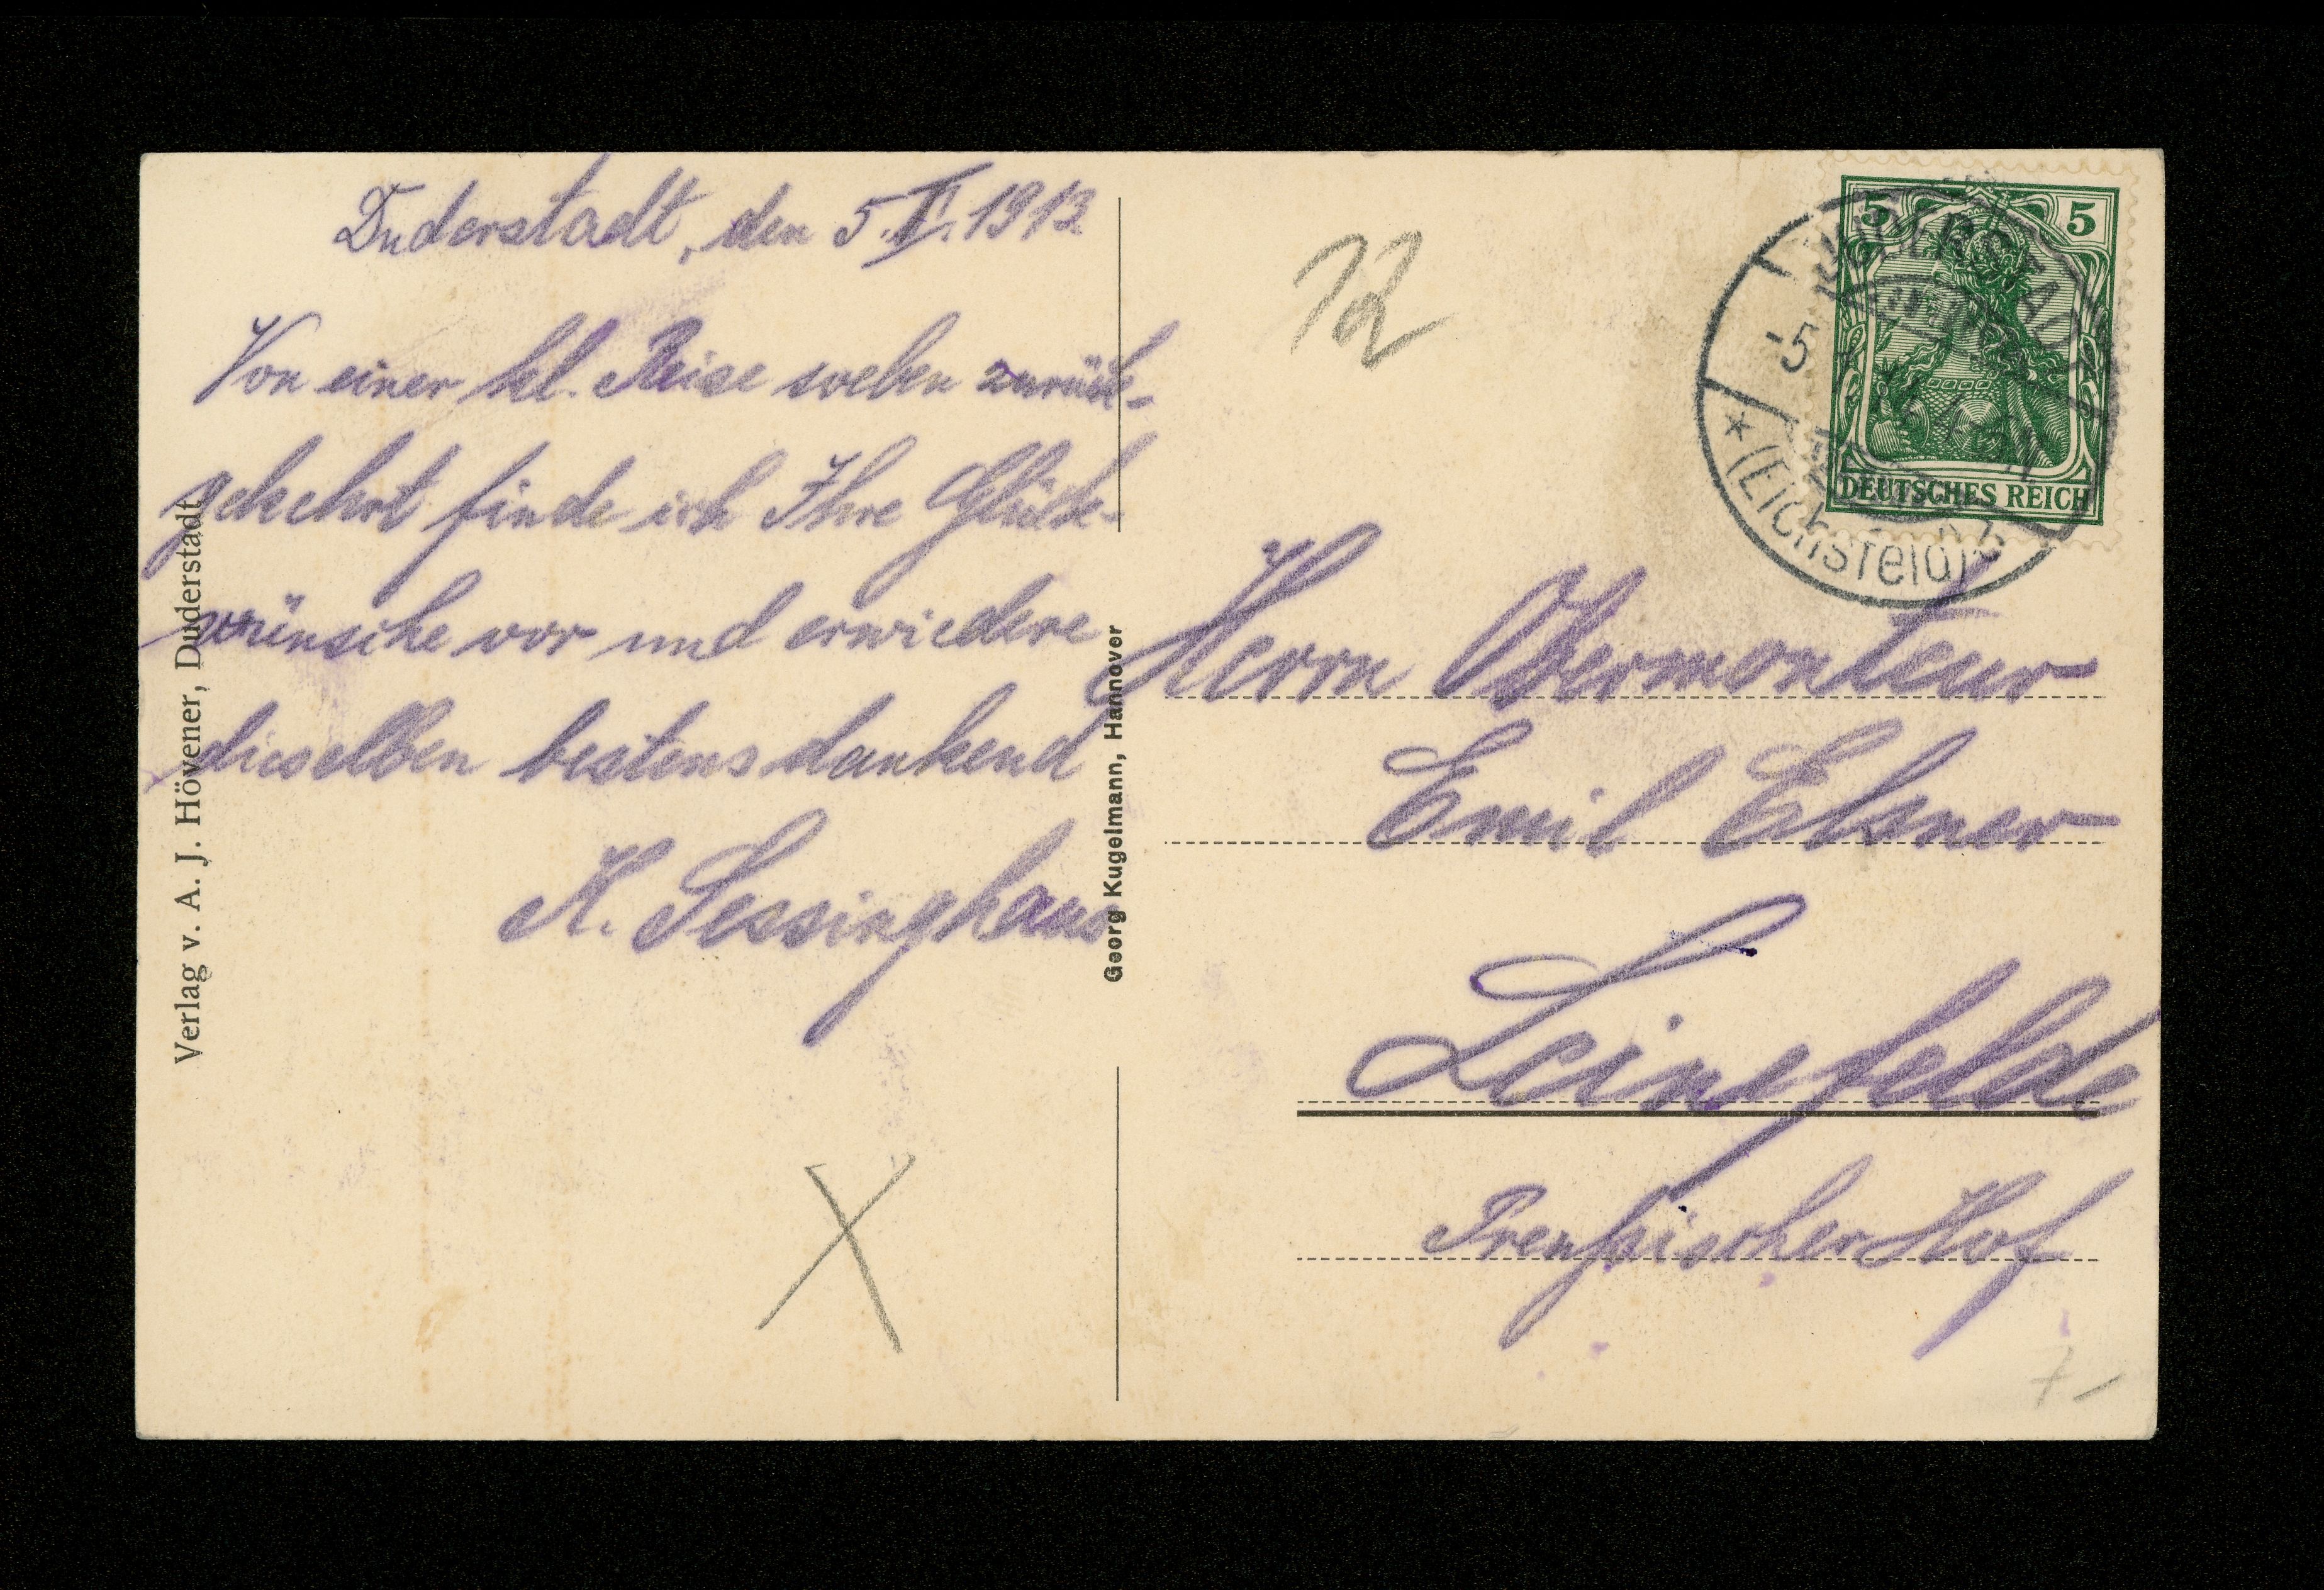 Duderstadt, den 5. II. 1912
Von einer kl. Reise soeben zurück-
gekehrt finde ich Ihre Glück-
wünsche vor und erwiedere
dieselben bestens dankend
K. Sessinghaus
Verlag v. A. J. Hövener, Duderstadt
Georg Kugelmann, Hannover
72
5 5
DEUTSCHES REICH
DUDERSTADT
-5
* (Eichsfeld)
Herrn Obermonteur
Emil Elsner
Leinefelde
Preußischer Hof